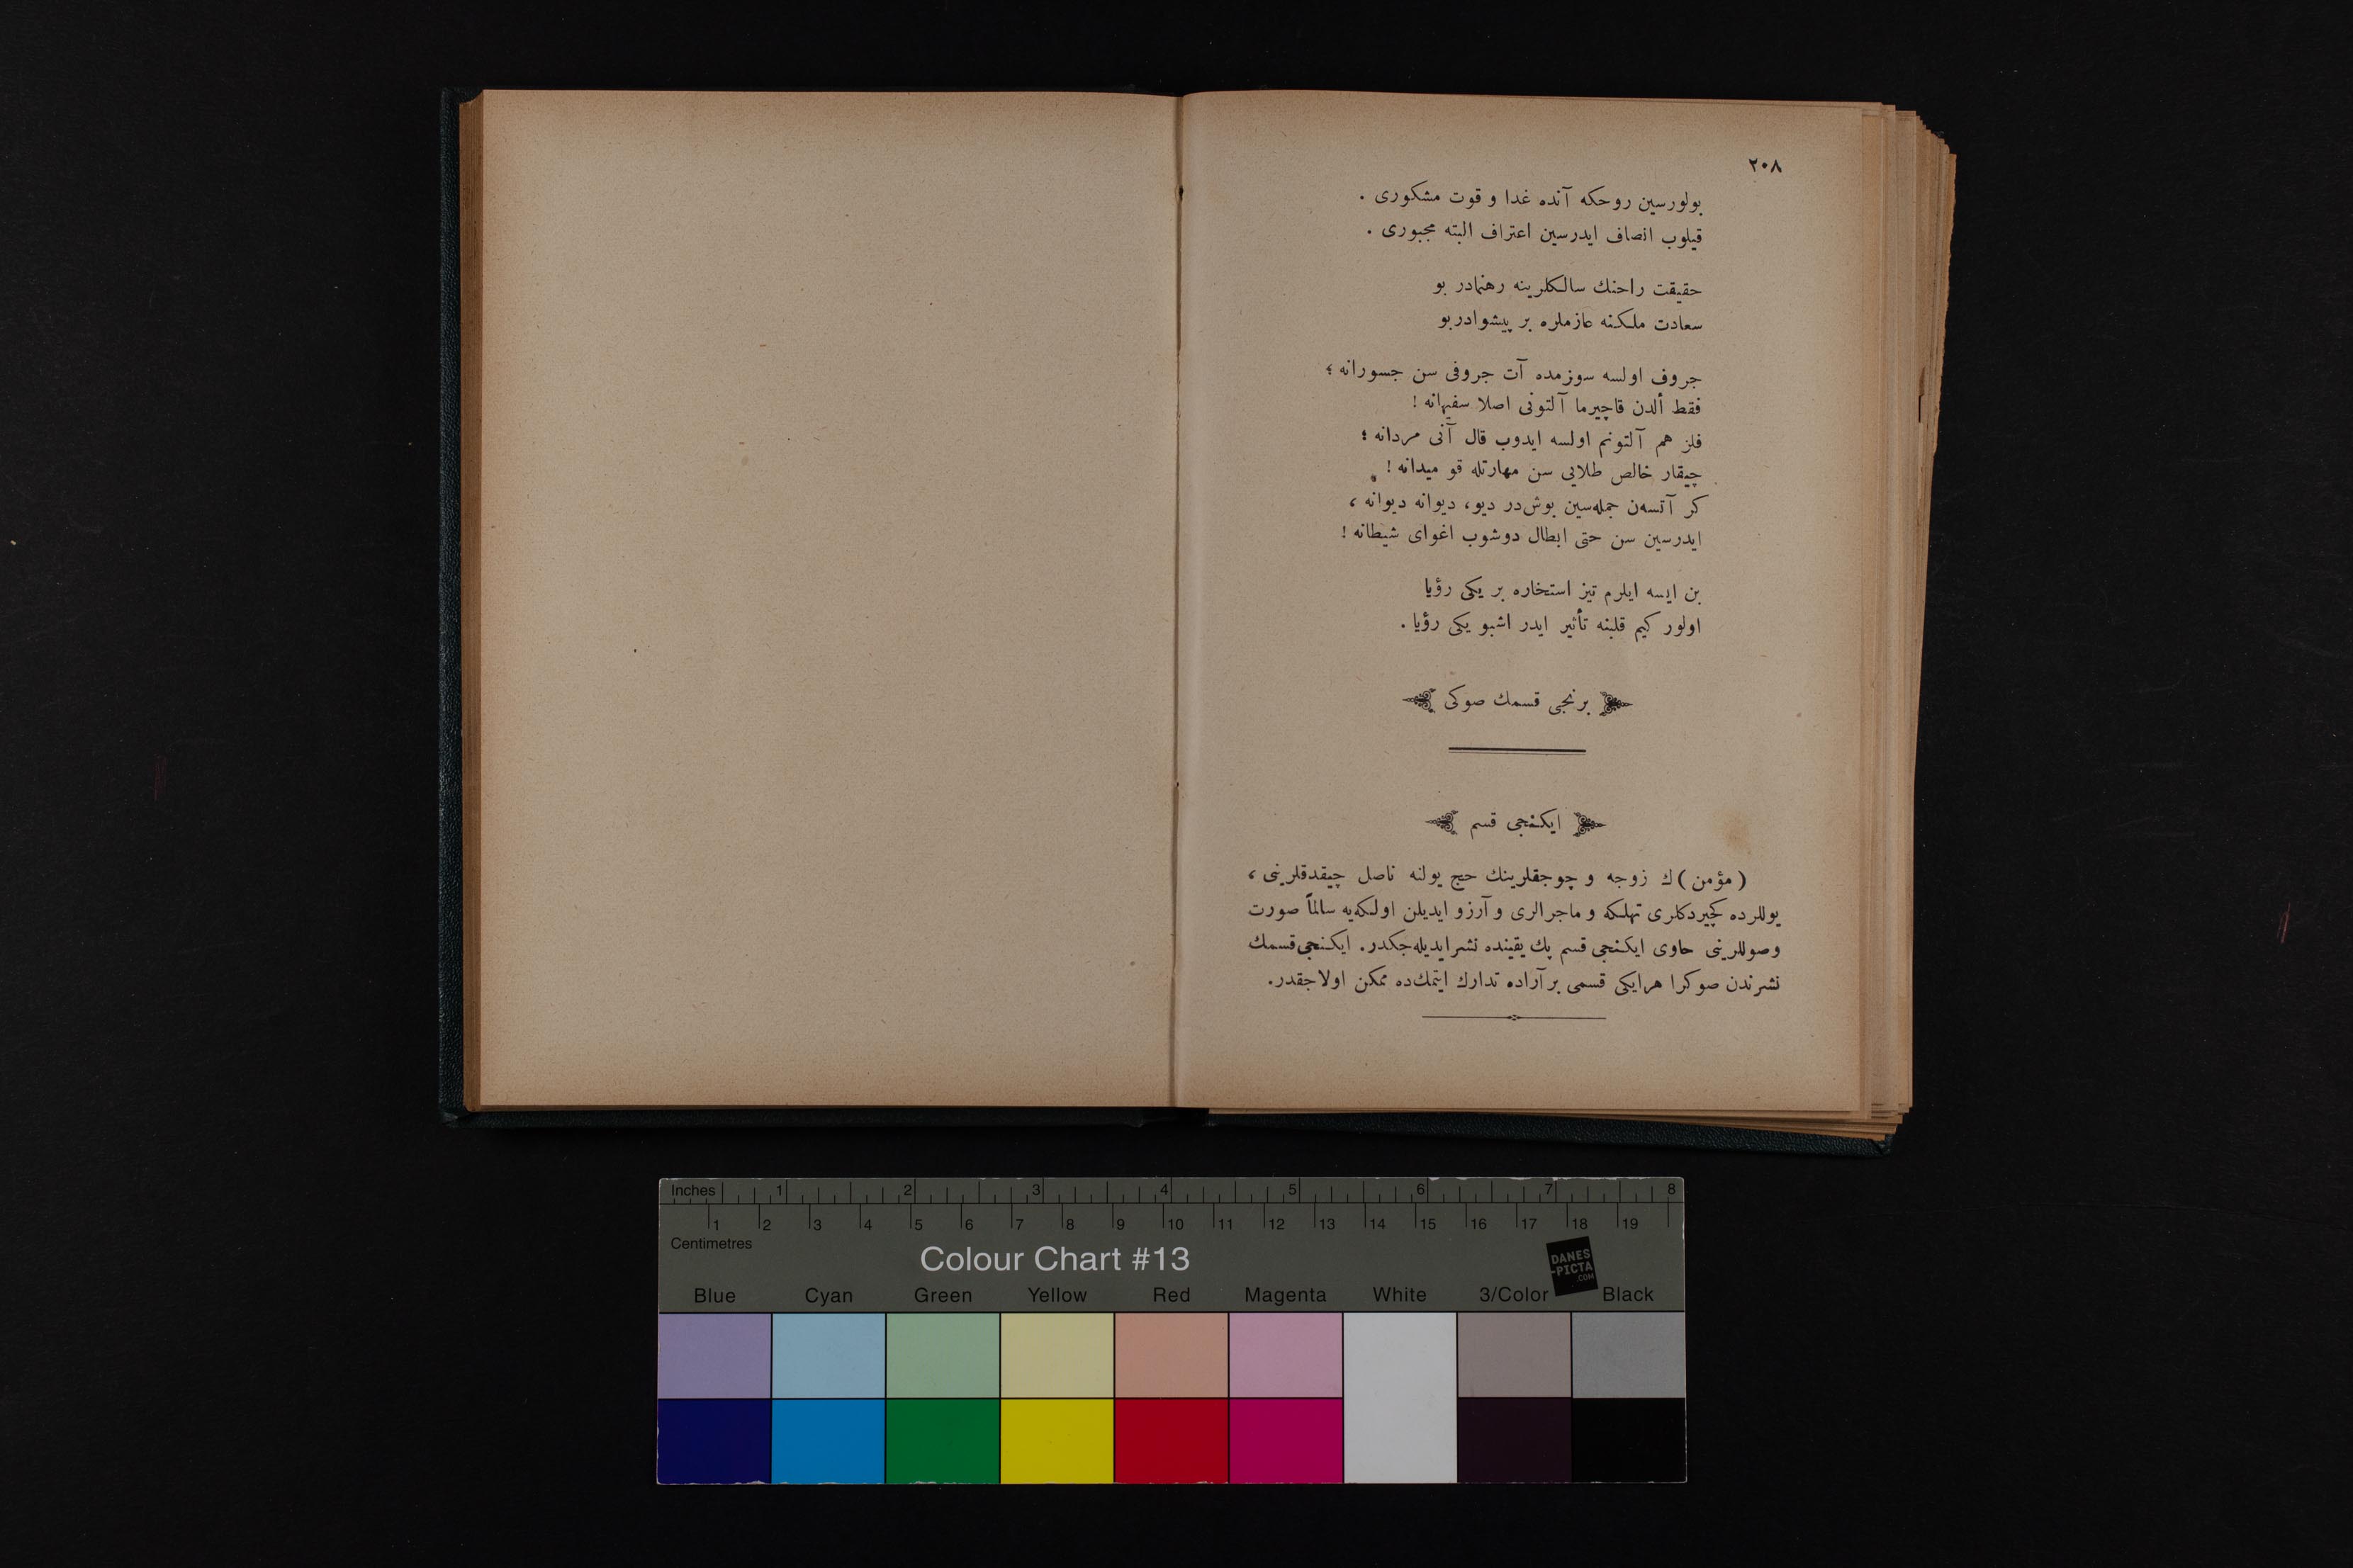 ٢٠٨
بولورسين روحكه آنده غدا و قوت مشكورى .
قيلوب انصاف ايدرسين اعتراف البته مجبورى .
حقيقت راحنك سالكلرينه رهنمادر بو
سعادت ملكنه عازملره بر پيشوادربو
جروف اولسه سوزمده آت جروفى سن جسورانه ؛
فقط ألدن قاچيرما آلتونى اصلا سفيهانه !
فلز هم آلتونم اولسه ايدوب قال آنى مردانه ؛
چيقار خالص طلايى سن مهارتله قو ميدانه !
كر آتسه‌ن جمله‌سين بوش‌در ديو، ديوانه ديوانه ،
ايدرسين سن حتى ابطال دوشوب اغواى شيطانه !
بن ايسه ايلرم تيز استخاره بر يكى رؤيا
اولور كيم قلبنه تأثير ايدر اشبو يكى رؤيا .
برنجى قسمك صوكى
ايكنجى قسم
(مؤمن) ك زوجه و چوجقلرينك حج يولنه ناصل چيقدقلرينى ،
يوللرده كچيردكلرى تهلكه و ماجرالرى و آرزو ايديلن اولكه‌يه سالماً صورت
وصوللرينى حاوى ايكنجى قسم پك يقينده نشرايديله‌جكدر. ايكنجى قسمك
نشرندن صوكرا هرايكى قسمى برآراده تدارك ايتمك‌ده ممكن اولاجقدر.
Inches 1 2 3 4 5 6 7 8
1 2 3 4 5 6 7 8 9 10 11 12 13 14 15 16 17 18 19
Centimetres
Colour Chart #13
DANES
-PICTA
.COM
Blue Cyan Green Yellow Red Magenta White 3/Color Black